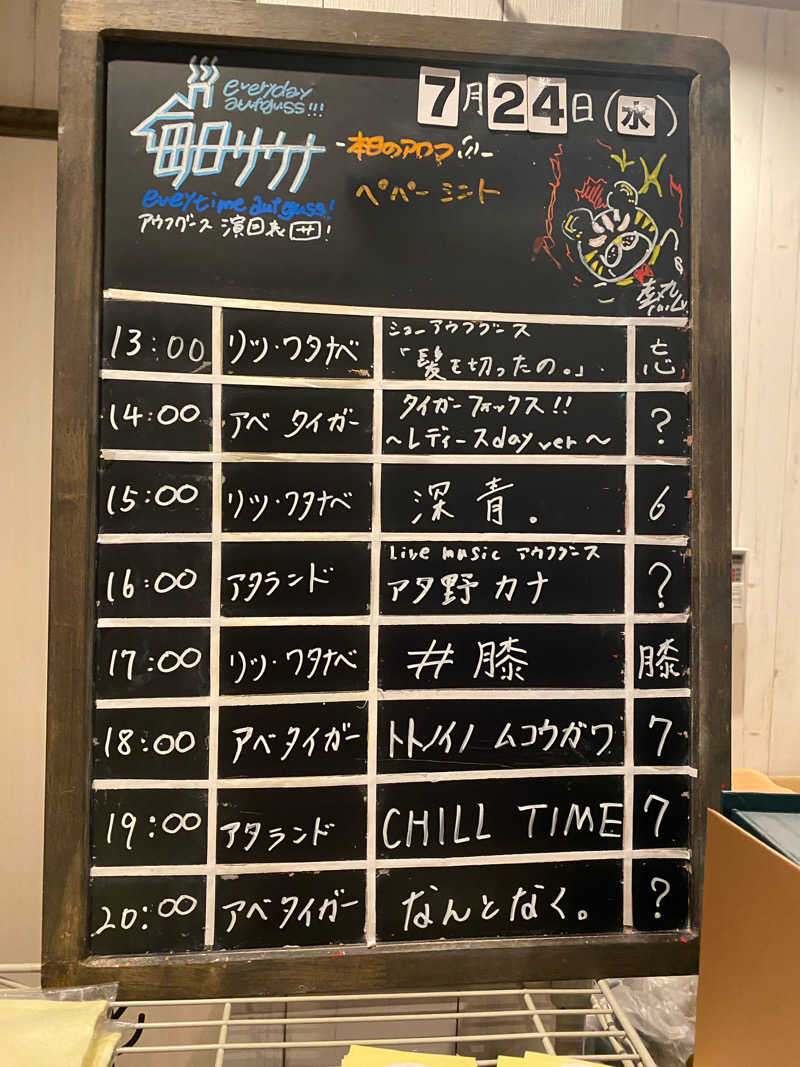 7月24日(水)
everyday
aufguss!!!
毎日サウナ
everytime aufguss!
アウフグース 演目表 サ!
-本日のアロマ
ペパーミント
熱
13:00 リツ・ワタナベ ショーアウフグース「髪を切ったの。」 忘
14:00 アベ タイガー タイガーフォックス!! ~レディースday ver~ ?
15:00 リツ・ワタナベ 深青。 6
16:00 アタランド Live music アウフグース アタ野カナ ?
17:00 リツ・ワタナベ #膝 膝
18:00 アベタイガー トトノイノ ムコウガワ 7
19:00 アタランド CHILL TIME 7
20:00 アベタイガー なんとなく。 ?